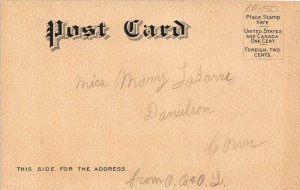 18-50
Post Card
Place Stamp
here
United States
and Canada
One Cent.
Foreign, Two
Cents.
Miss Mary
Danielson
Conn
THIS SIDE FOR THE ADDRESS.
from